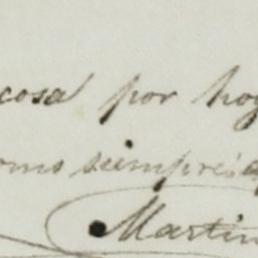 cosa por hoy
como siempre
Martin